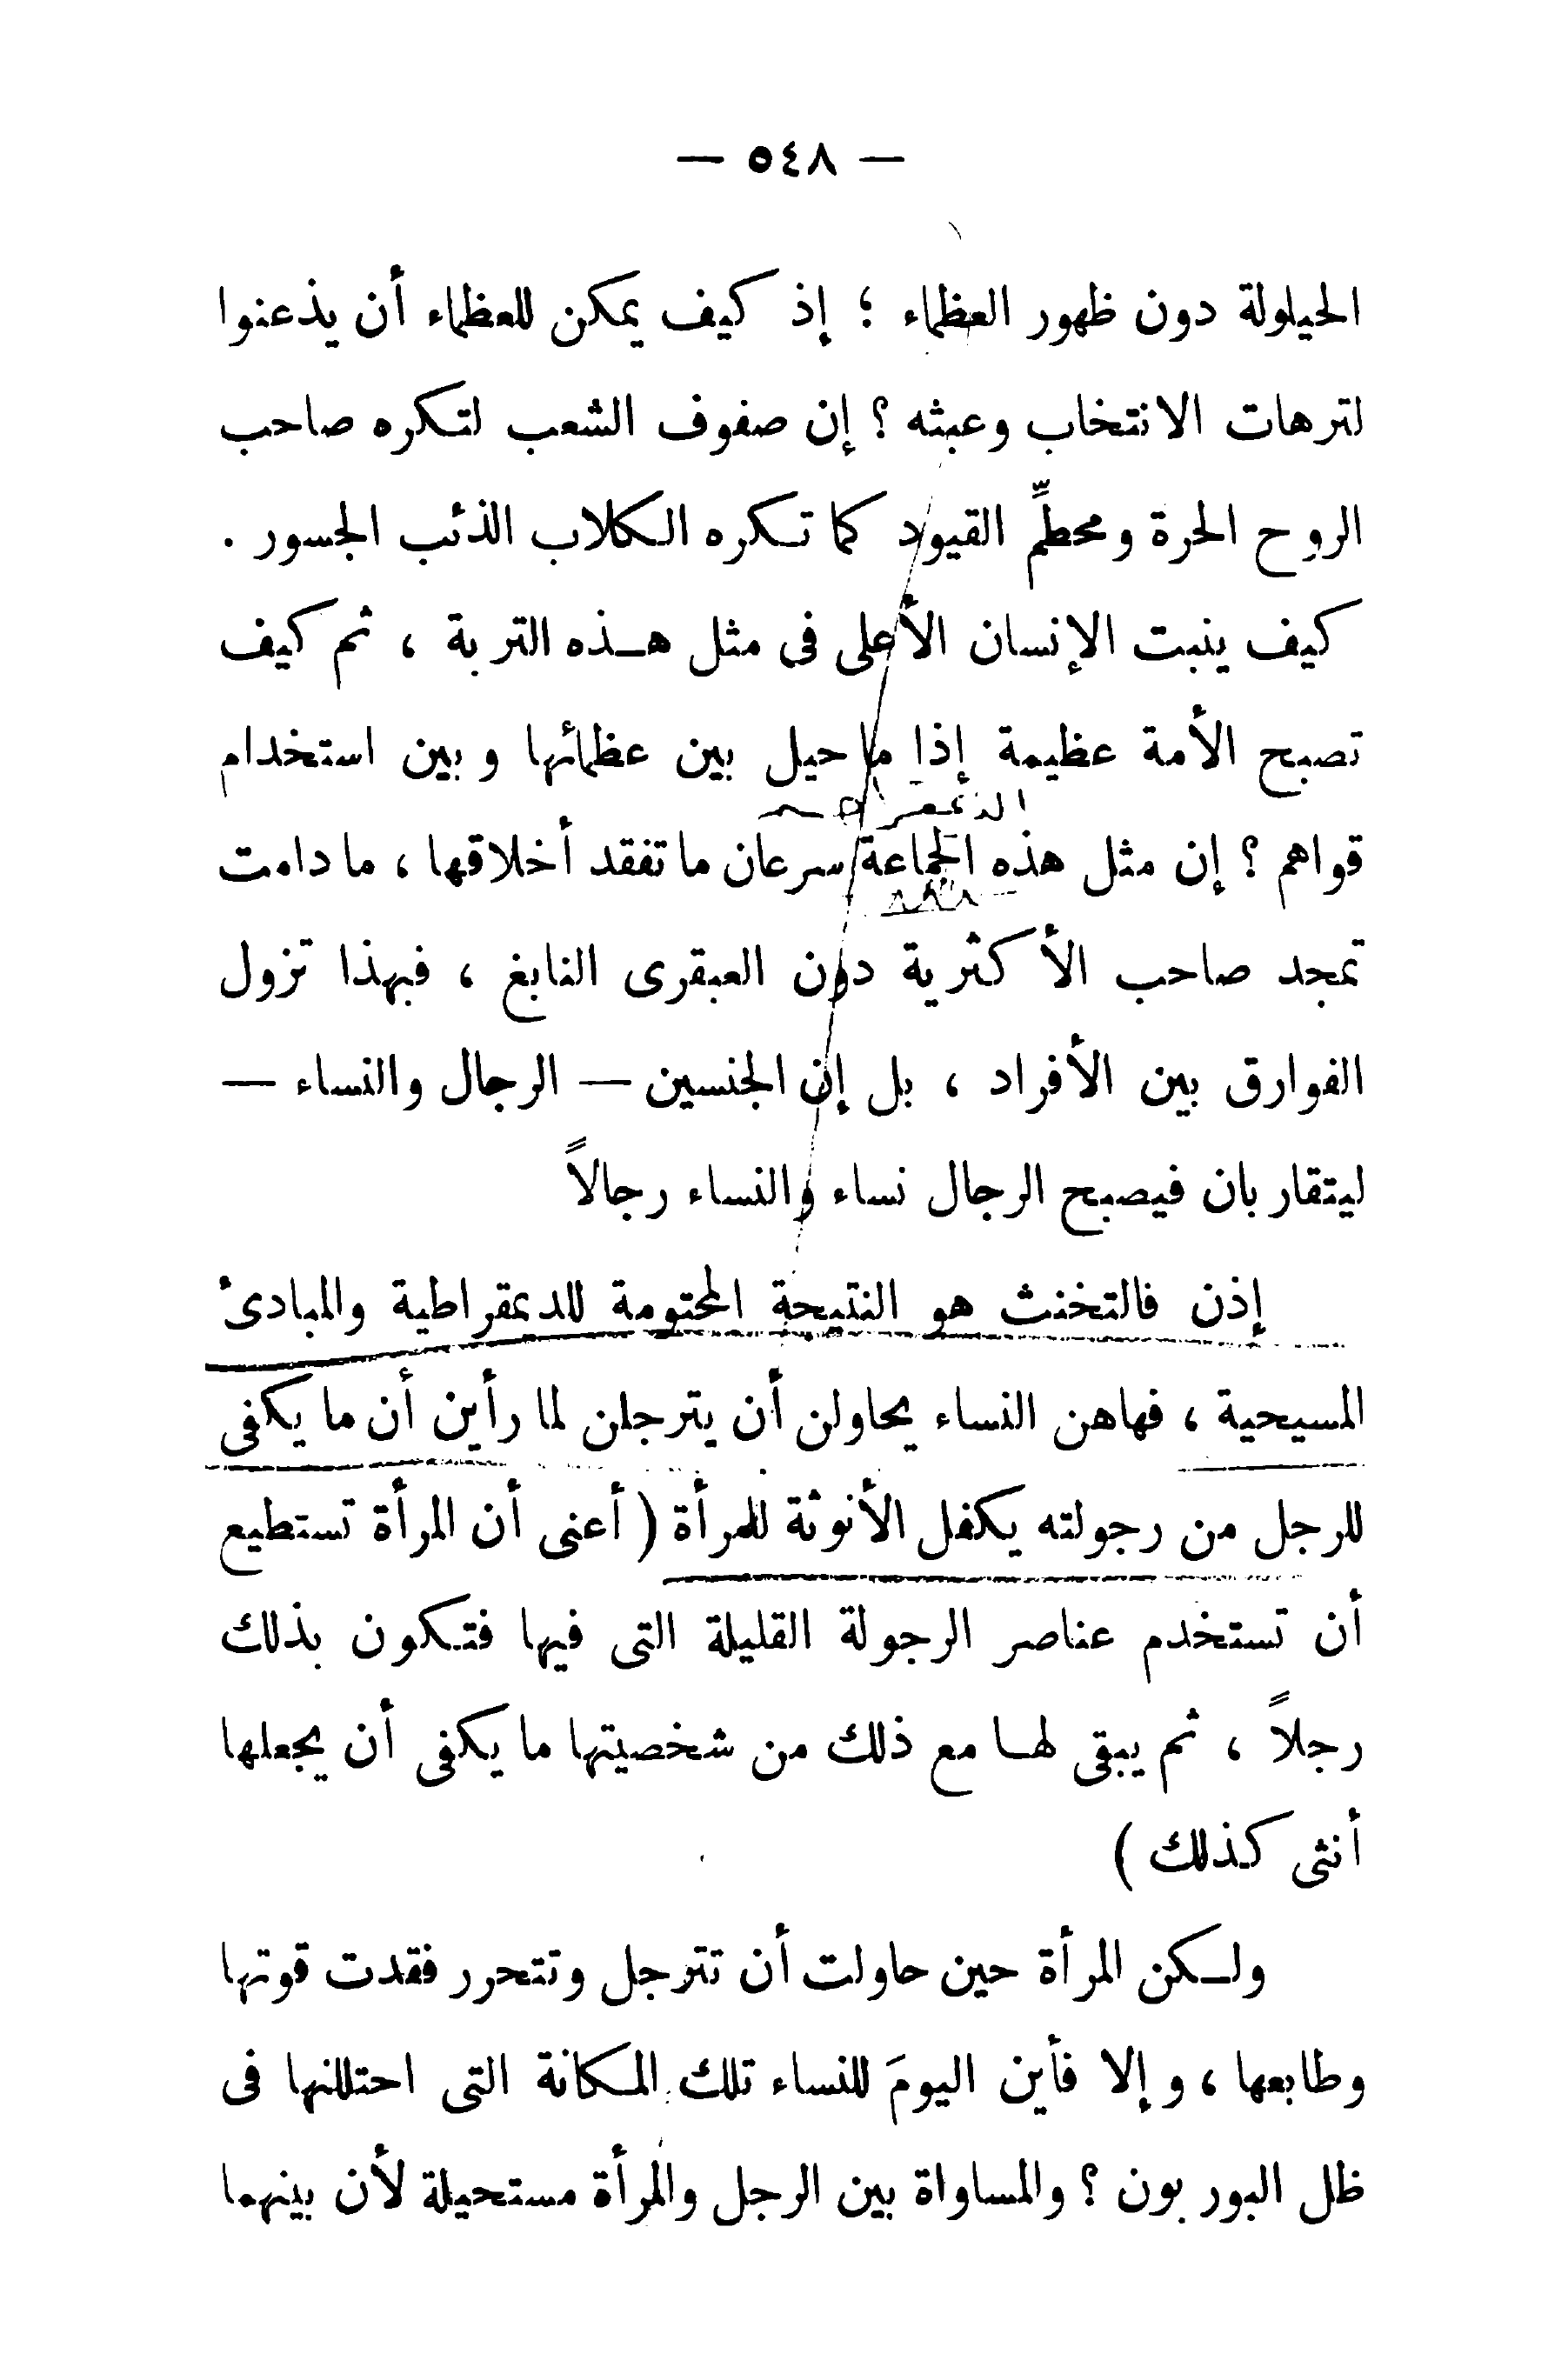 — ٥٤٨ —
الحيلولة دون ظهور العظماء ؛ إذ كيف يمكن للعظماء أن يذعنوا
لترهات الانتخاب وعبثه ؟ إن صفوف الشعب لتكره صاحب
الروح الحرة ومحطِّم القيود كما تكره الكلاب الذئب الجسور .
كيف ينبت الإنسان الأعلى فى مثل هذه التربة ، ثم كيف
تصبح الأمة عظيمة إذا ما حيل بين عظمائها وبين استخدام
قواهم ؟ إن مثل هذه الجماعة سرعان ما تفقد أخلاقها ، ما دامت
تمجد صاحب الأكثرية دون العبقرى النابغ ، فبهذا تزول
الفوارق بين الأفراد ، بل إن الجنسين — الرجال والنساء —
ليتقاربان فيصبح الرجال نساء والنساء رجالاً
إذن فالتخنث هو النتيجة المحتومة للديمقراطية والمبادئ
المسيحية ، فهاهن النساء يحاولن أن يترجلن لما رأين أن ما يكفى
للرجل من رجولته يكفل الأنوثة للمرأة ( أعنى أن المرأة تستطيع
أن تستخدم عناصر الرجولة القليلة التى فيها فتكون بذلك
رجلاً ، ثم يبقى لها مع ذلك من شخصيتها ما يكفى أن يجعلها
أنثى كذلك )
ولكن المرأة حين حاولت أن تترجل وتتحرر فقدت قوتها
وطابعها ، وإلا فأين اليومَ للنساء تلك المكانة التى احتللنها فى
ظل البوربون ؟ والمساواة بين الرجل والمرأة مستحيلة لأن بينهما